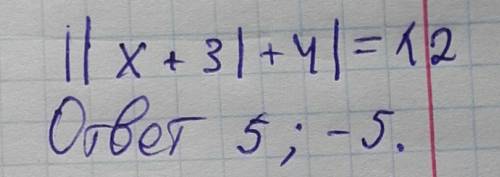 ||x+3|+4|=12
Ответ 5; -5.